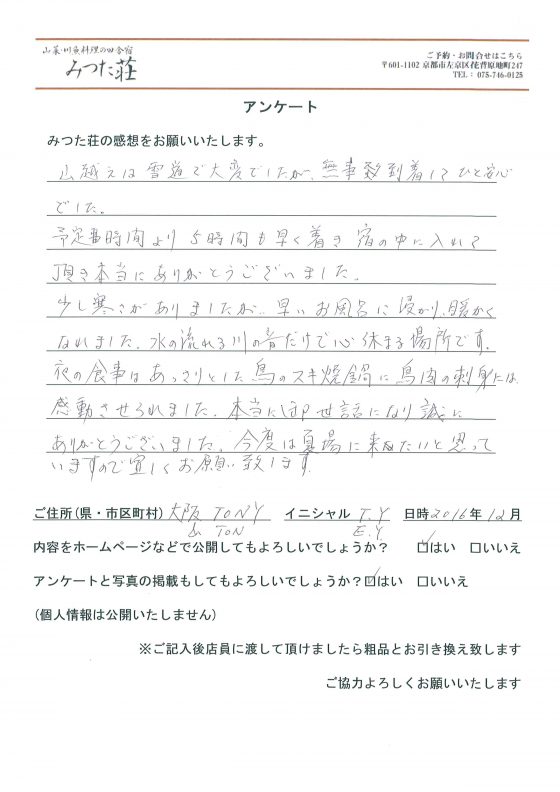 山菜・川魚料理の田舎宿
みつた荘
ご予約・お問合せはこちら
〒601-1102 京都市左京区花背原地町247
TEL: 075-746-0125
アンケート
みつた荘の感想をお願いいたします。
山越えは雪道で大変でしたが、無事到着してひと安心
でした。
予定時間より5時間も早く着き宿の中に入れて
頂き本当にありがとうございました。
少し寒さがありましたが、早いお風呂に浸かり、暖かく
なれました。水の流れる川の音だけで心休まる場所です。
夜の食事はあっさりとした鳥のスキ焼鍋に鳥肉の刺身には
感動させられました。本当にお世話になり誠に
ありがとうございました。今度は夏場に来たいと思って
いますので宜しくお願い致します。
ご住所(県・市区町村) 大阪 TONY イニシャル T.Y 日時2016年12月
& TON E.Y.
内容をホームページなどで公開してもよろしいでしょうか? ☑はい □いいえ
アンケートと写真の掲載もしてもよろしいでしょうか?☑はい □いいえ
(個人情報は公開いたしません)
※ご記入後店員に渡して頂けましたら粗品とお引き換え致します
ご協力よろしくお願いいたします